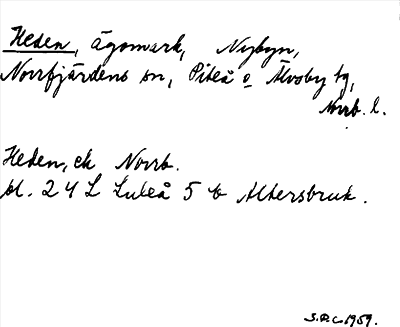 Heden, ägomark, Nybyn,
Norrfjärdens sn, Piteå o Älvsby tg,
Norrb. l.
Heden, ek Norrb.
bl. 24 L Luleå 5 b Altersbruk.
S.R.C. 1959.